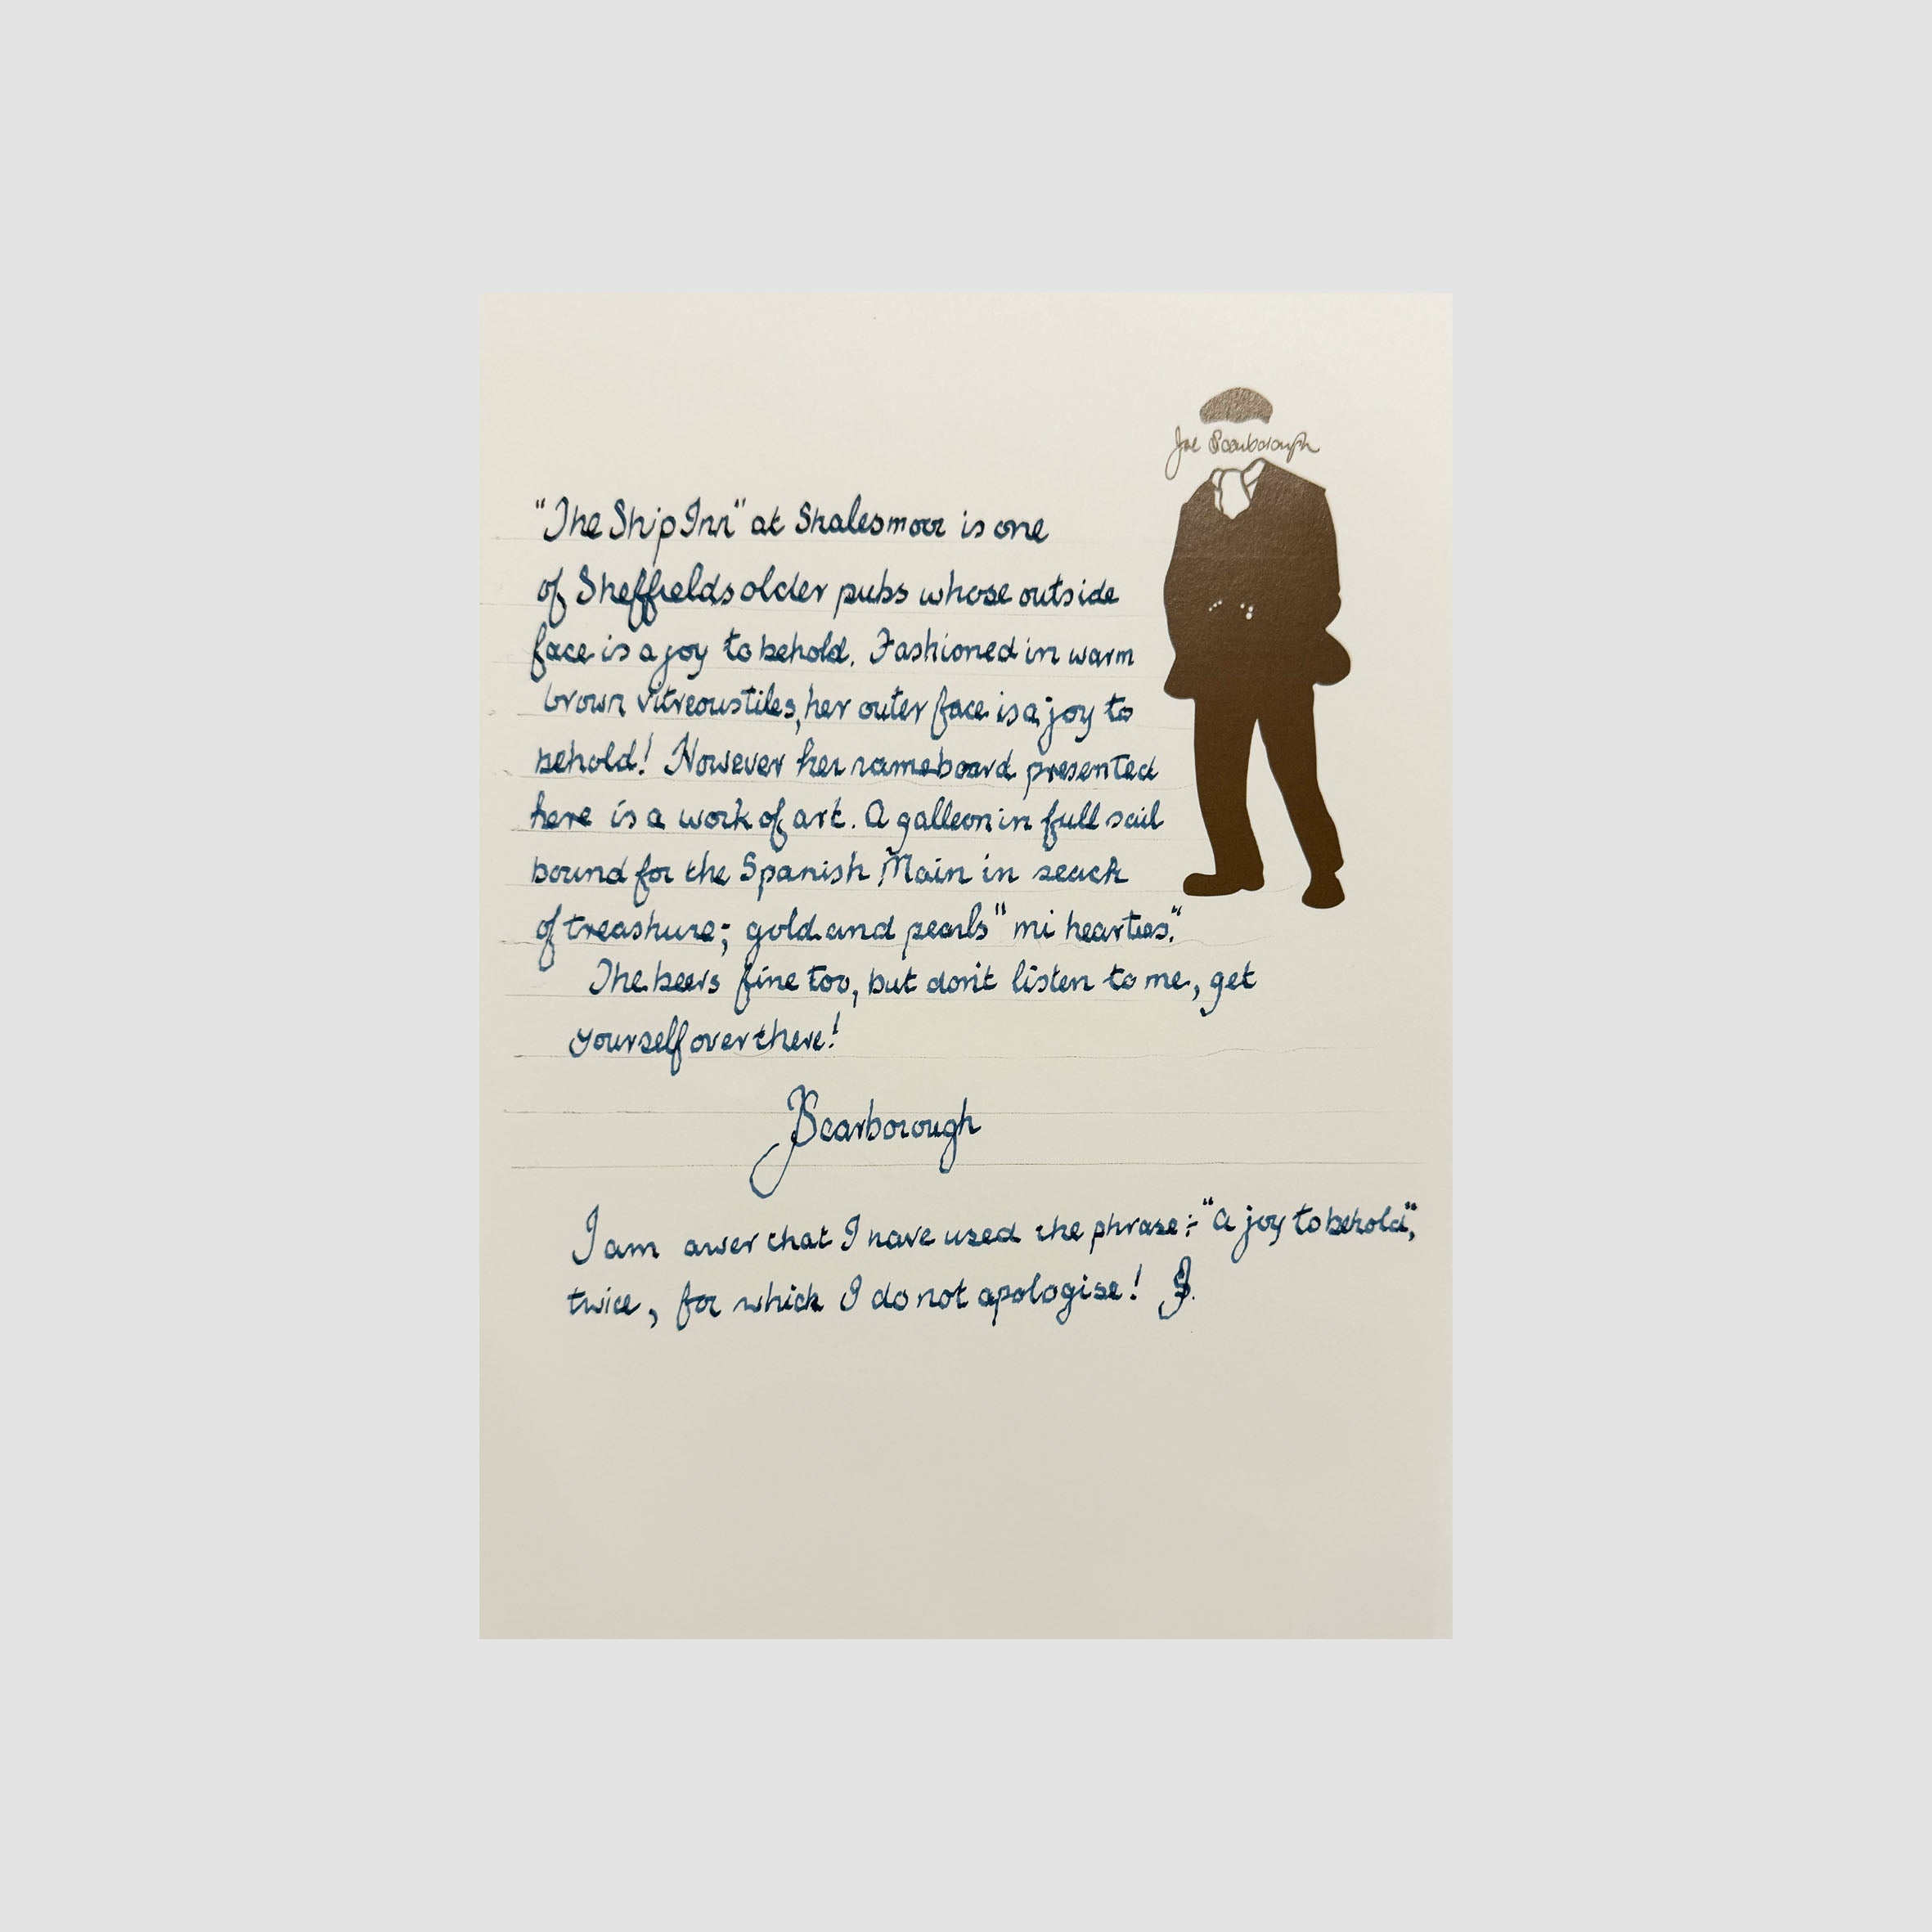 Joe Scarborough
"The Ship Inn" at Shalesmoor is one
of Sheffields older pubs whose outside
face is a joy to behold. Fashioned in warm
brown vitreous tiles, her outer face is a joy to
behold! However her nameboard presented
here is a work of art. A galleon in full sail
bound for the Spanish Main in seach
of treashure; gold and pearls "mi hearties".
The beers fine too, but don't listen to me, get
yourself over there!
JScarborough
I am awer that I have used the phrase:- "A joy to behold",
twice, for which I do not apologise! JS.